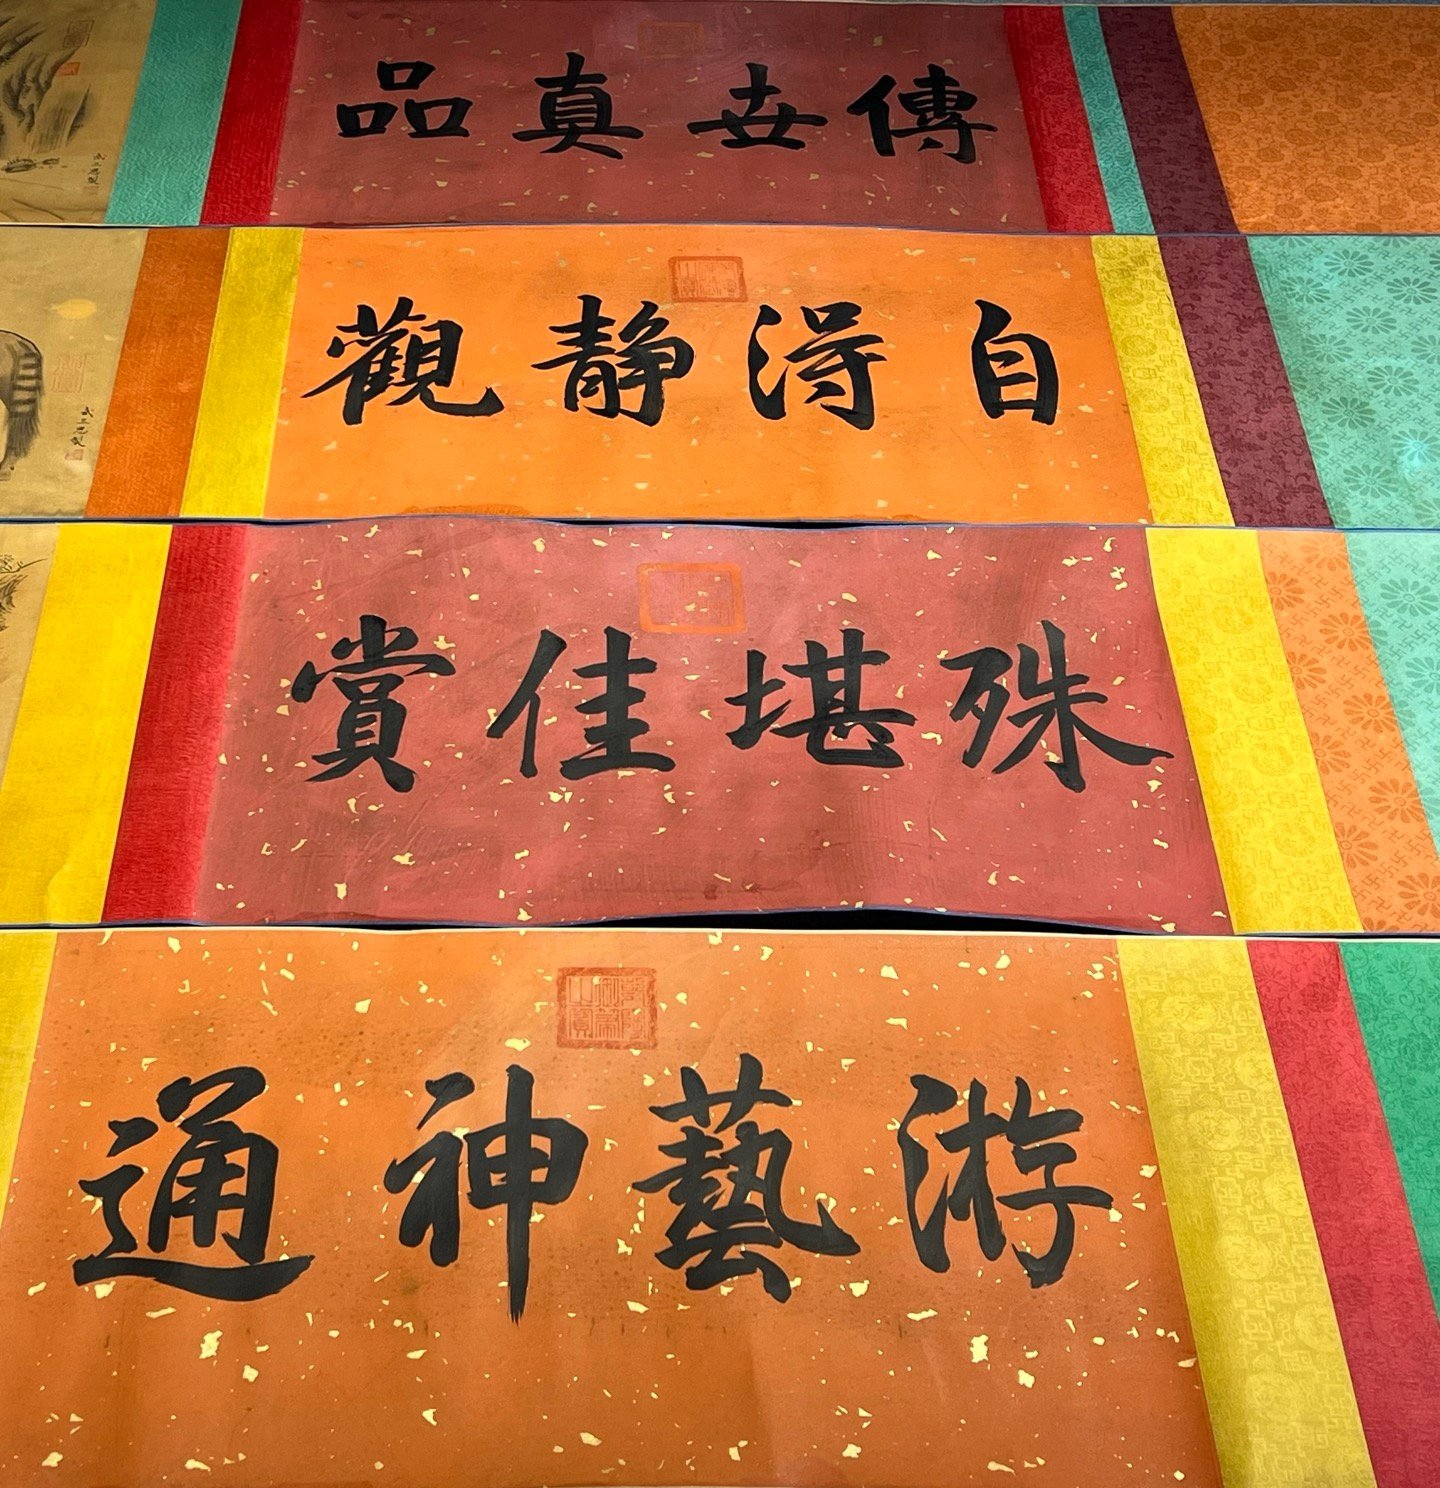 傳世真品
自得靜觀
殊堪佳賞
游藝神通